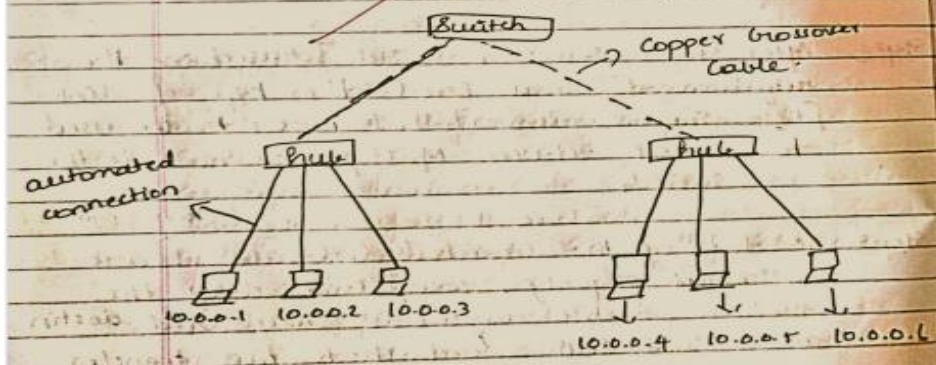 Switch
Copper Crossover
Cable.
Hub
Hub
automated
connection
10.0.0.1 10.0.0.2 10.0.0.3
10.0.0.4 10.0.0.5 10.0.0.6